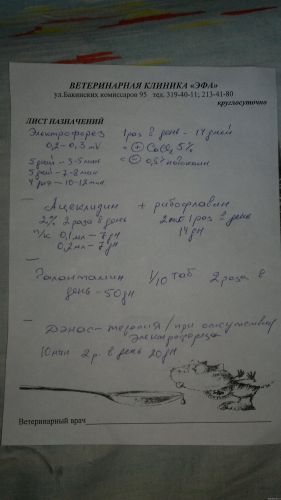 ВЕТЕРИНАРНАЯ КЛИНИКА «ЭФА»
ул.Бакинских комиссаров 95 тел. 319-40-11; 213-41-80
круглосуточно
ЛИСТ НАЗНАЧЕНИЙ
Электрофорез 1 раз в день - 14 дней
0,2-0,3 mV = + CaCl₂ 5%
5 дней - 3-5 мин = - 0,5% новокаин
5 дней - 7-8 мин
4 дня - 10-12 мин
Ацеклидин + рибофлавин
2% 2 раза в день 2 таб 1 раз в день
п/к 0,1 мл - 7 дн 14 дн
0,2 мл - 7 дн
Галантамин 1/10 таб 2 раза в
день - 50 дн
Дэнас-терапия /при отсутствии
электрофореза
10 мин 2 р. в день 20 дн
Ветеринарный врач